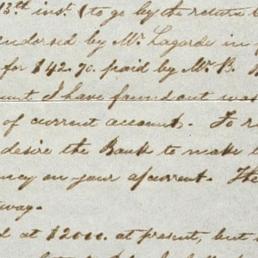 13th inst. (to go by the return
endorsed by Mr. Lagarde in
for $42.70. paid by Mr. B.
I have found out was
of current account. To
desire the Bank to make
on your account. The
way.
d at $2000. at present, but